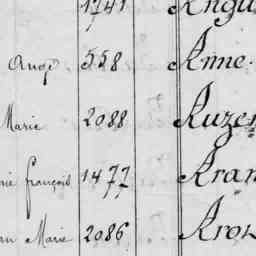 1741 Angu
Ange 558 Anne
Marie 2088 Auzer
rie françois 1477 Aran
an Marie 2086 Aro